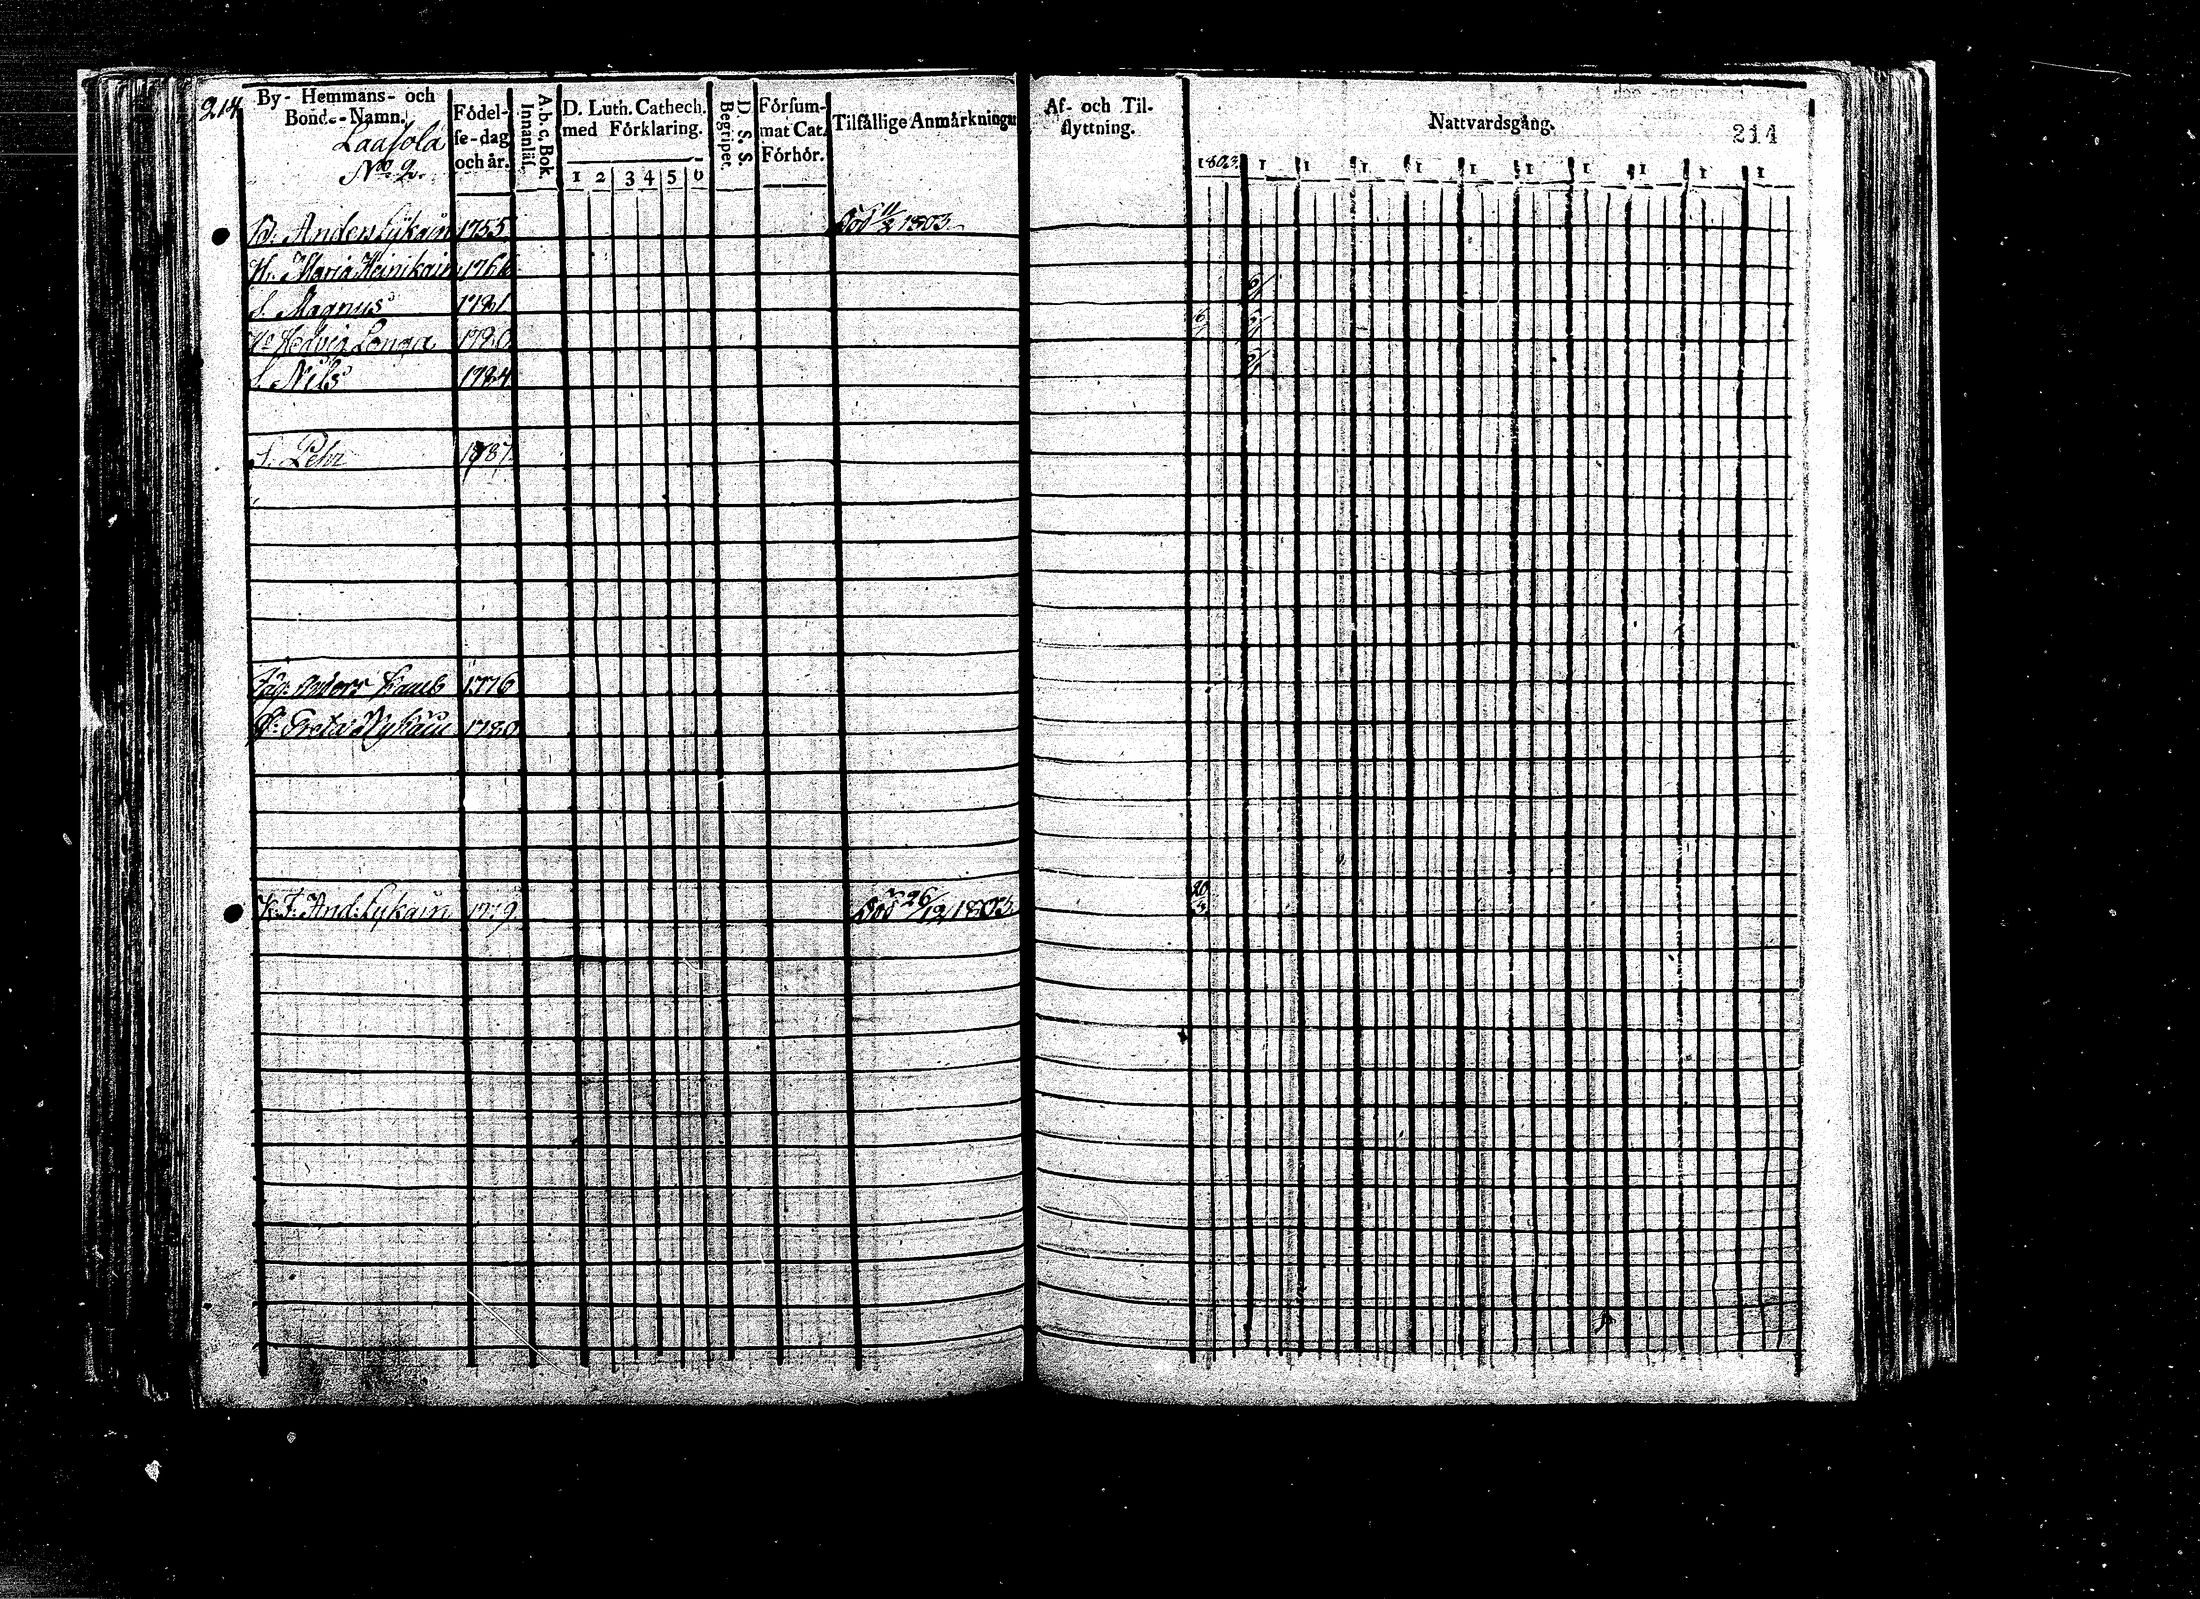 214.
By- Hemmans- och
Bonde-Namn.
Laasola
No 2.
Födel-
se-dag
och år.
A. b. c. Bok
Innanläs.
D. Luth. Cathech.
med Förklaring.
1 2 3 4 5 6
D. S. S.
Begriper.
Försum-
mat Cat.
Förhör.
Tilfällige Anmärkningar
Af- och Til-
flyttning.
Nattvardsgång.
214
1803. 1 1 1 1 1 1 1 1 1 1
B. Anders 1755 Död 11/2 1803.
H. Maria Heinikain
S. Magnus 1781 6/1
H. Hedvig Longa 1780 6/1 5/1
S. Nils 1784 6/1
S. Pehr 1787
Anders 1776
H. Greta 1780
And: 1779 Död 26/12 1803. 20/3